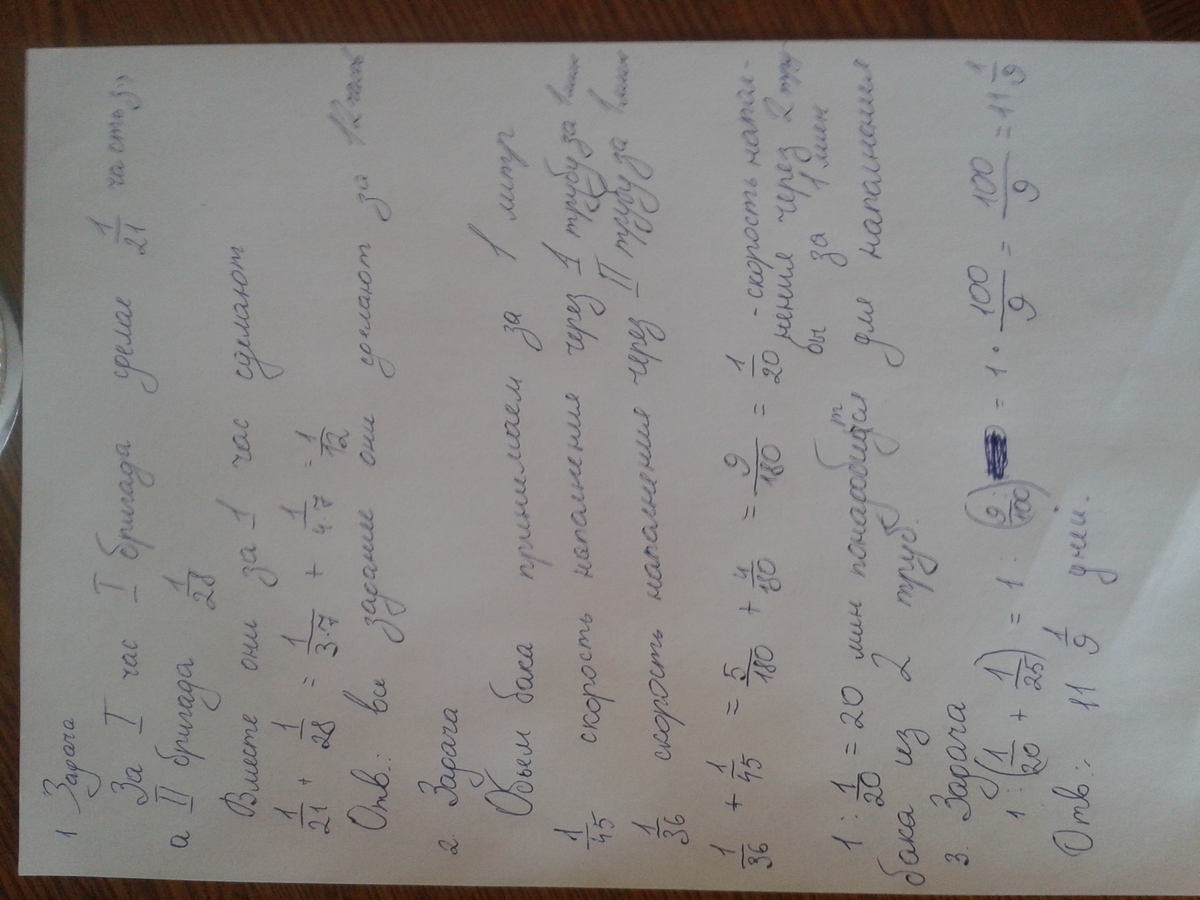 1 Задача
За I час I бригада сделае 1/21 часть,
а II бригада 1/28
Вместе они за 1 час сделают
1/21 + 1/28 = 1/3·7 + 1/4·7 = 1/12
Отв.: все задание они сделают за 12 часов
2. Задача
Объем бака принимаем за 1 литр
1/45 скорость наполнения через 1 трубу за 1 мин
1/36 скорость наполнения через II трубу за 1 мин
1/36 + 1/45 = 5/180 + 4/180 = 9/180 = 1/20 - скорость напол-
нения через 2 тру-
бы за 1 мин
1 : 1/20 = 20 мин понадобится для наполнения
бака из 2 труб.
3. Задача
1 : (1/20 + 1/25) = 1 : (9/100) = 1 · 100/9 = 100/9 = 11 1/9
Отв.: 11 1/9 дней.